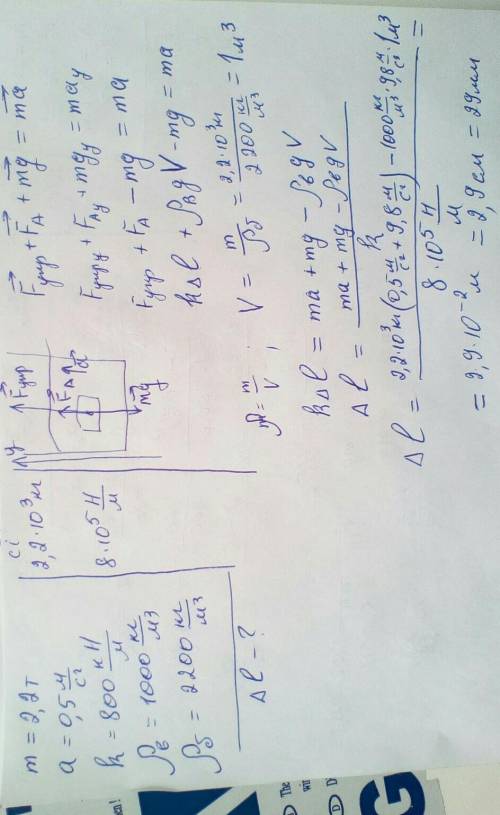 m = 2,2 т
a = 0,5 м/с²
k = 800 кН/м
ρв = 1000 кг/м³
ρδ = 2200 кг/м³
Δl - ?
Сі
2,2·10³ кг
8·10⁵ Н/м
y
F⃗упр
F⃗A
a⃗
mg⃗
F⃗упр + F⃗A + mg⃗ = ma⃗
Fупр y + FA y + mgy = may
Fупр + FA - mg = ma
kΔl + ρвgV - mg = ma
ρ = m/V ; V = m/ρδ = 2,2·10³ кг / 2200 кг/м³ = 1 м³
kΔl = ma + mg - ρвgV
Δl = (ma + mg - ρвgV) / k
Δl = (2,2·10³ кг (0,5 м/с² + 9,8 м/с²) - 1000 кг/м³ · 9,8 м/с² · 1 м³) / 8·10⁵ Н/м =
= 2,9·10⁻² м = 2,9 см = 29 мм
The
wi
D
G